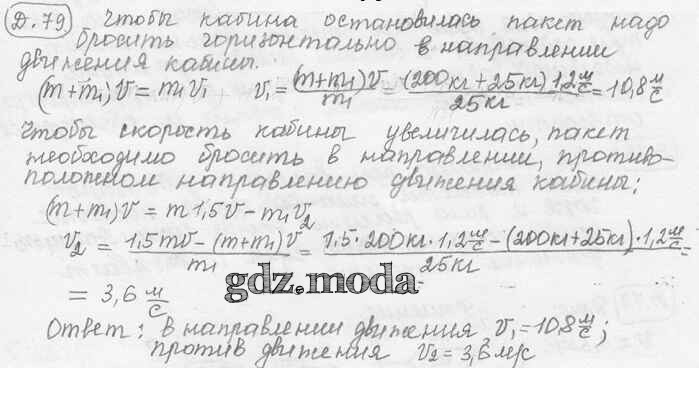 Д.79 Чтобы кабина остановилась, пакет надо
бросить горизонтально в направлении
движения кабины.
(m+m₁)v = m₁v₁ v₁ = (m+m₁)v / m₁ = (200кг+25кг)1,2 м/с / 25кг = 10,8 м/с
Чтобы скорость кабины увеличилась, пакет
необходимо бросить в направлении, противо-
положном направлению движения кабины:
(m+m₁)v = m1,5v - m₁v₂
v₂ = 1,5mv-(m+m₁)v / m₁ = 1,5·200кг·1,2 м/с - (200кг+25кг)·1,2 м/с / 25кг =
= 3,6 м/с
gdz.moda
Ответ: в направлении движения v₁=10,8 м/с;
против движения v₂ = 3,6 м/с